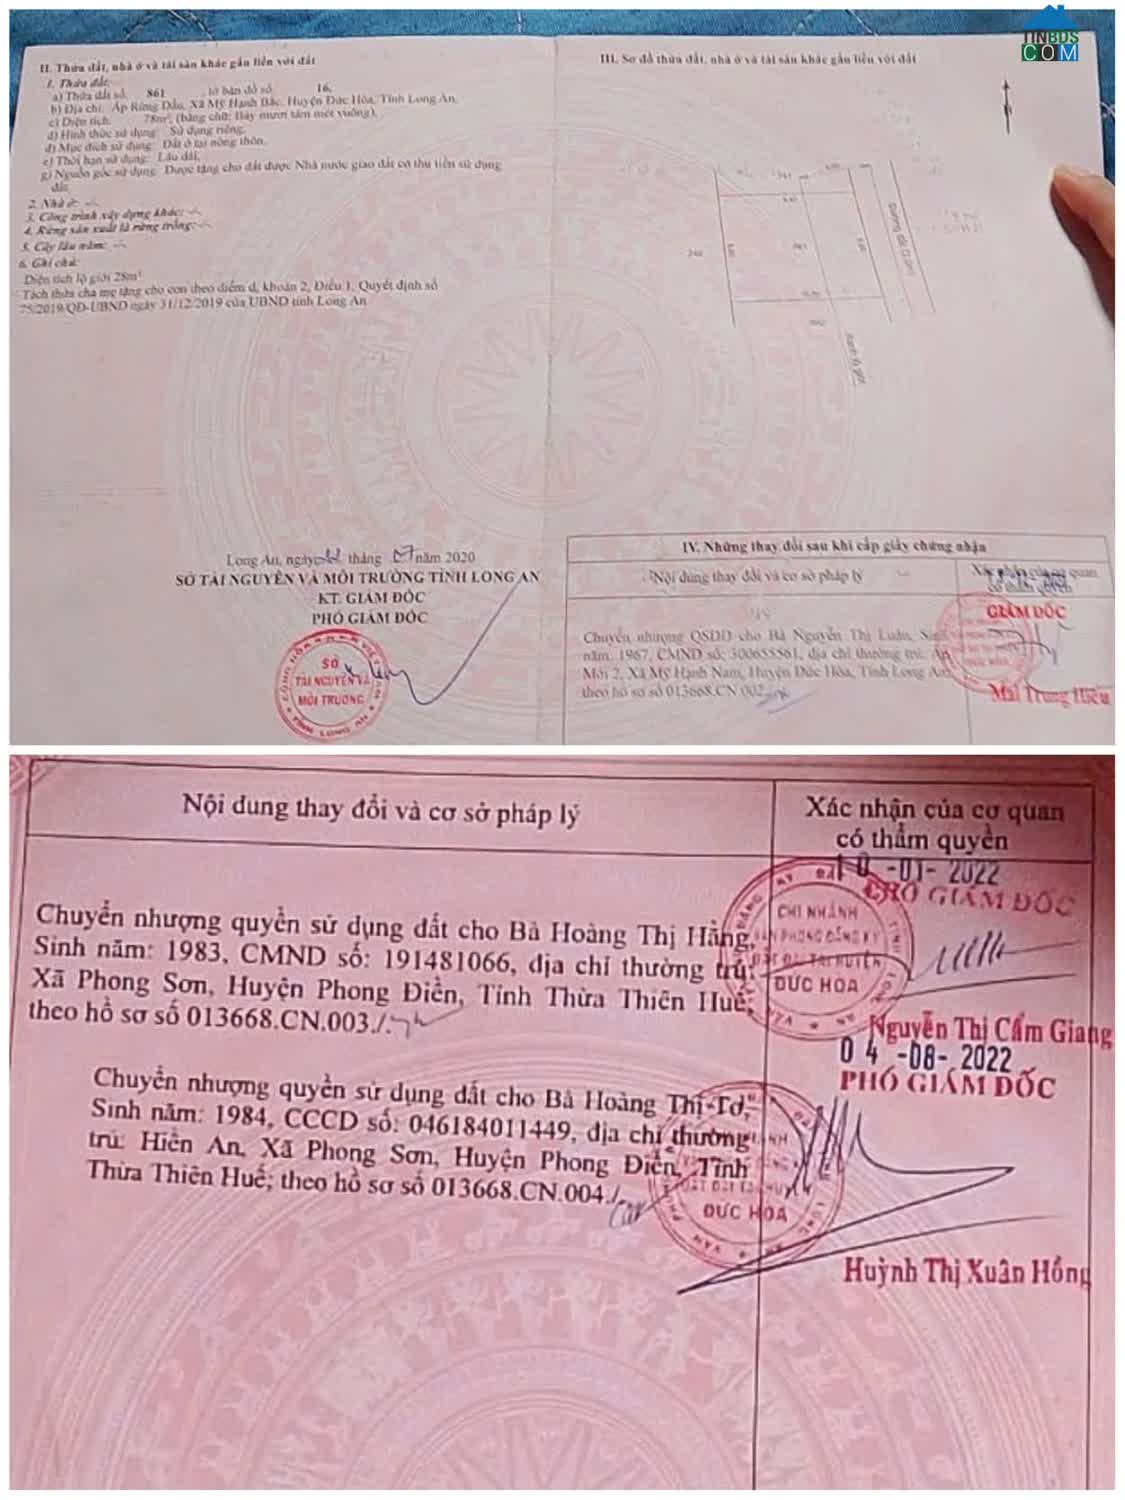 TINBDS
COM
II. Thửa đất, nhà ở và tài sản khác gắn liền với đất
1. Thửa đất:
a) Thửa đất số: 861 , tờ bản đồ số: 16,
b) Địa chỉ: Ấp Rừng Dầu, Xã Mỹ Hạnh Bắc, Huyện Đức Hòa, Tỉnh Long An,
c) Diện tích: 78m², (bằng chữ: Bảy mươi tám mét vuông),
d) Hình thức sử dụng: Sử dụng riêng,
đ) Mục đích sử dụng: Đất ở tại nông thôn,
e) Thời hạn sử dụng: Lâu dài,
g) Nguồn gốc sử dụng: Được tặng cho đất được Nhà nước giao đất có thu tiền sử dụng
đất.
2. Nhà ở: -/-
3. Công trình xây dựng khác: -/-
4. Rừng sản xuất là rừng trồng: -/-
5. Cây lâu năm: -/-
6. Ghi chú:
Diện tích lộ giới 28m²
Tách thửa cha mẹ tặng cho con theo điểm d, khoản 2, Điều 1, Quyết định số
75/2019/QĐ-UBND ngày 31/12/2019 của UBND tỉnh Long An
Long An, ngày tháng 07 năm 2020
SỞ TÀI NGUYÊN VÀ MÔI TRƯỜNG TỈNH LONG AN
KT. GIÁM ĐỐC
PHÓ GIÁM ĐỐC
SỞ
TÀI NGUYÊN VÀ
MÔI TRƯỜNG
TỈNH LONG AN
III. Sơ đồ thửa đất, nhà ở và tài sản khác gắn liền với đất
Ranh lộ giới
IV. Những thay đổi sau khi cấp giấy chứng nhận
Nội dung thay đổi và cơ sở pháp lý
Xác nhận của cơ quan
có thẩm quyền
Chuyển nhượng QSDĐ cho Bà Nguyễn Thị Luận, Sinh
năm: 1967, CMND số: 300655561, địa chỉ thường trú: Ấp
Mới 2, Xã Mỹ Hạnh Nam, Huyện Đức Hòa, Tỉnh Long An,
theo hồ sơ số 013668.CN.002
GIÁM ĐỐC
Mai Trung Hiếu
Nội dung thay đổi và cơ sở pháp lý
Xác nhận của cơ quan
có thẩm quyền
Chuyển nhượng quyền sử dụng đất cho Bà Hoàng Thị Hằng,
Sinh năm: 1983, CMND số: 191481066, địa chỉ thường trú:
Xã Phong Sơn, Huyện Phong Điền, Tỉnh Thừa Thiên Huế,
theo hồ sơ số 013668.CN.003./.
10 -01- 2022
PHÓ GIÁM ĐỐC
CHI NHÁNH
VĂN PHÒNG ĐĂNG KÝ
ĐẤT ĐAI TẠI HUYỆN
ĐỨC HÒA
Nguyễn Thị Cẩm Giang
Chuyển nhượng quyền sử dụng đất cho Bà Hoàng Thị Tơ,
Sinh năm: 1984, CCCD số: 046184011449, địa chỉ thường
trú: Hiền An, Xã Phong Sơn, Huyện Phong Điền, Tỉnh
Thừa Thiên Huế; theo hồ sơ số 013668.CN.004./.
04 -08- 2022
PHÓ GIÁM ĐỐC
ĐỨC HÒA
Huỳnh Thị Xuân Hồng